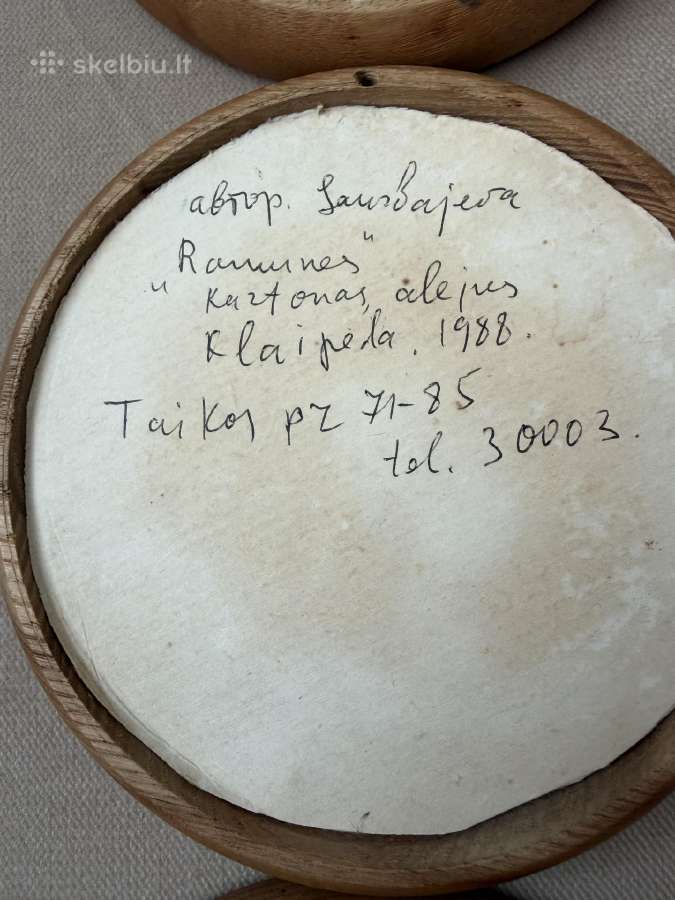 skelbiu.lt
автор.
"Ramunes"
kartonas, alejus
Klaipėda. 1988.
Taikos pr 71-85
tel. 30003.